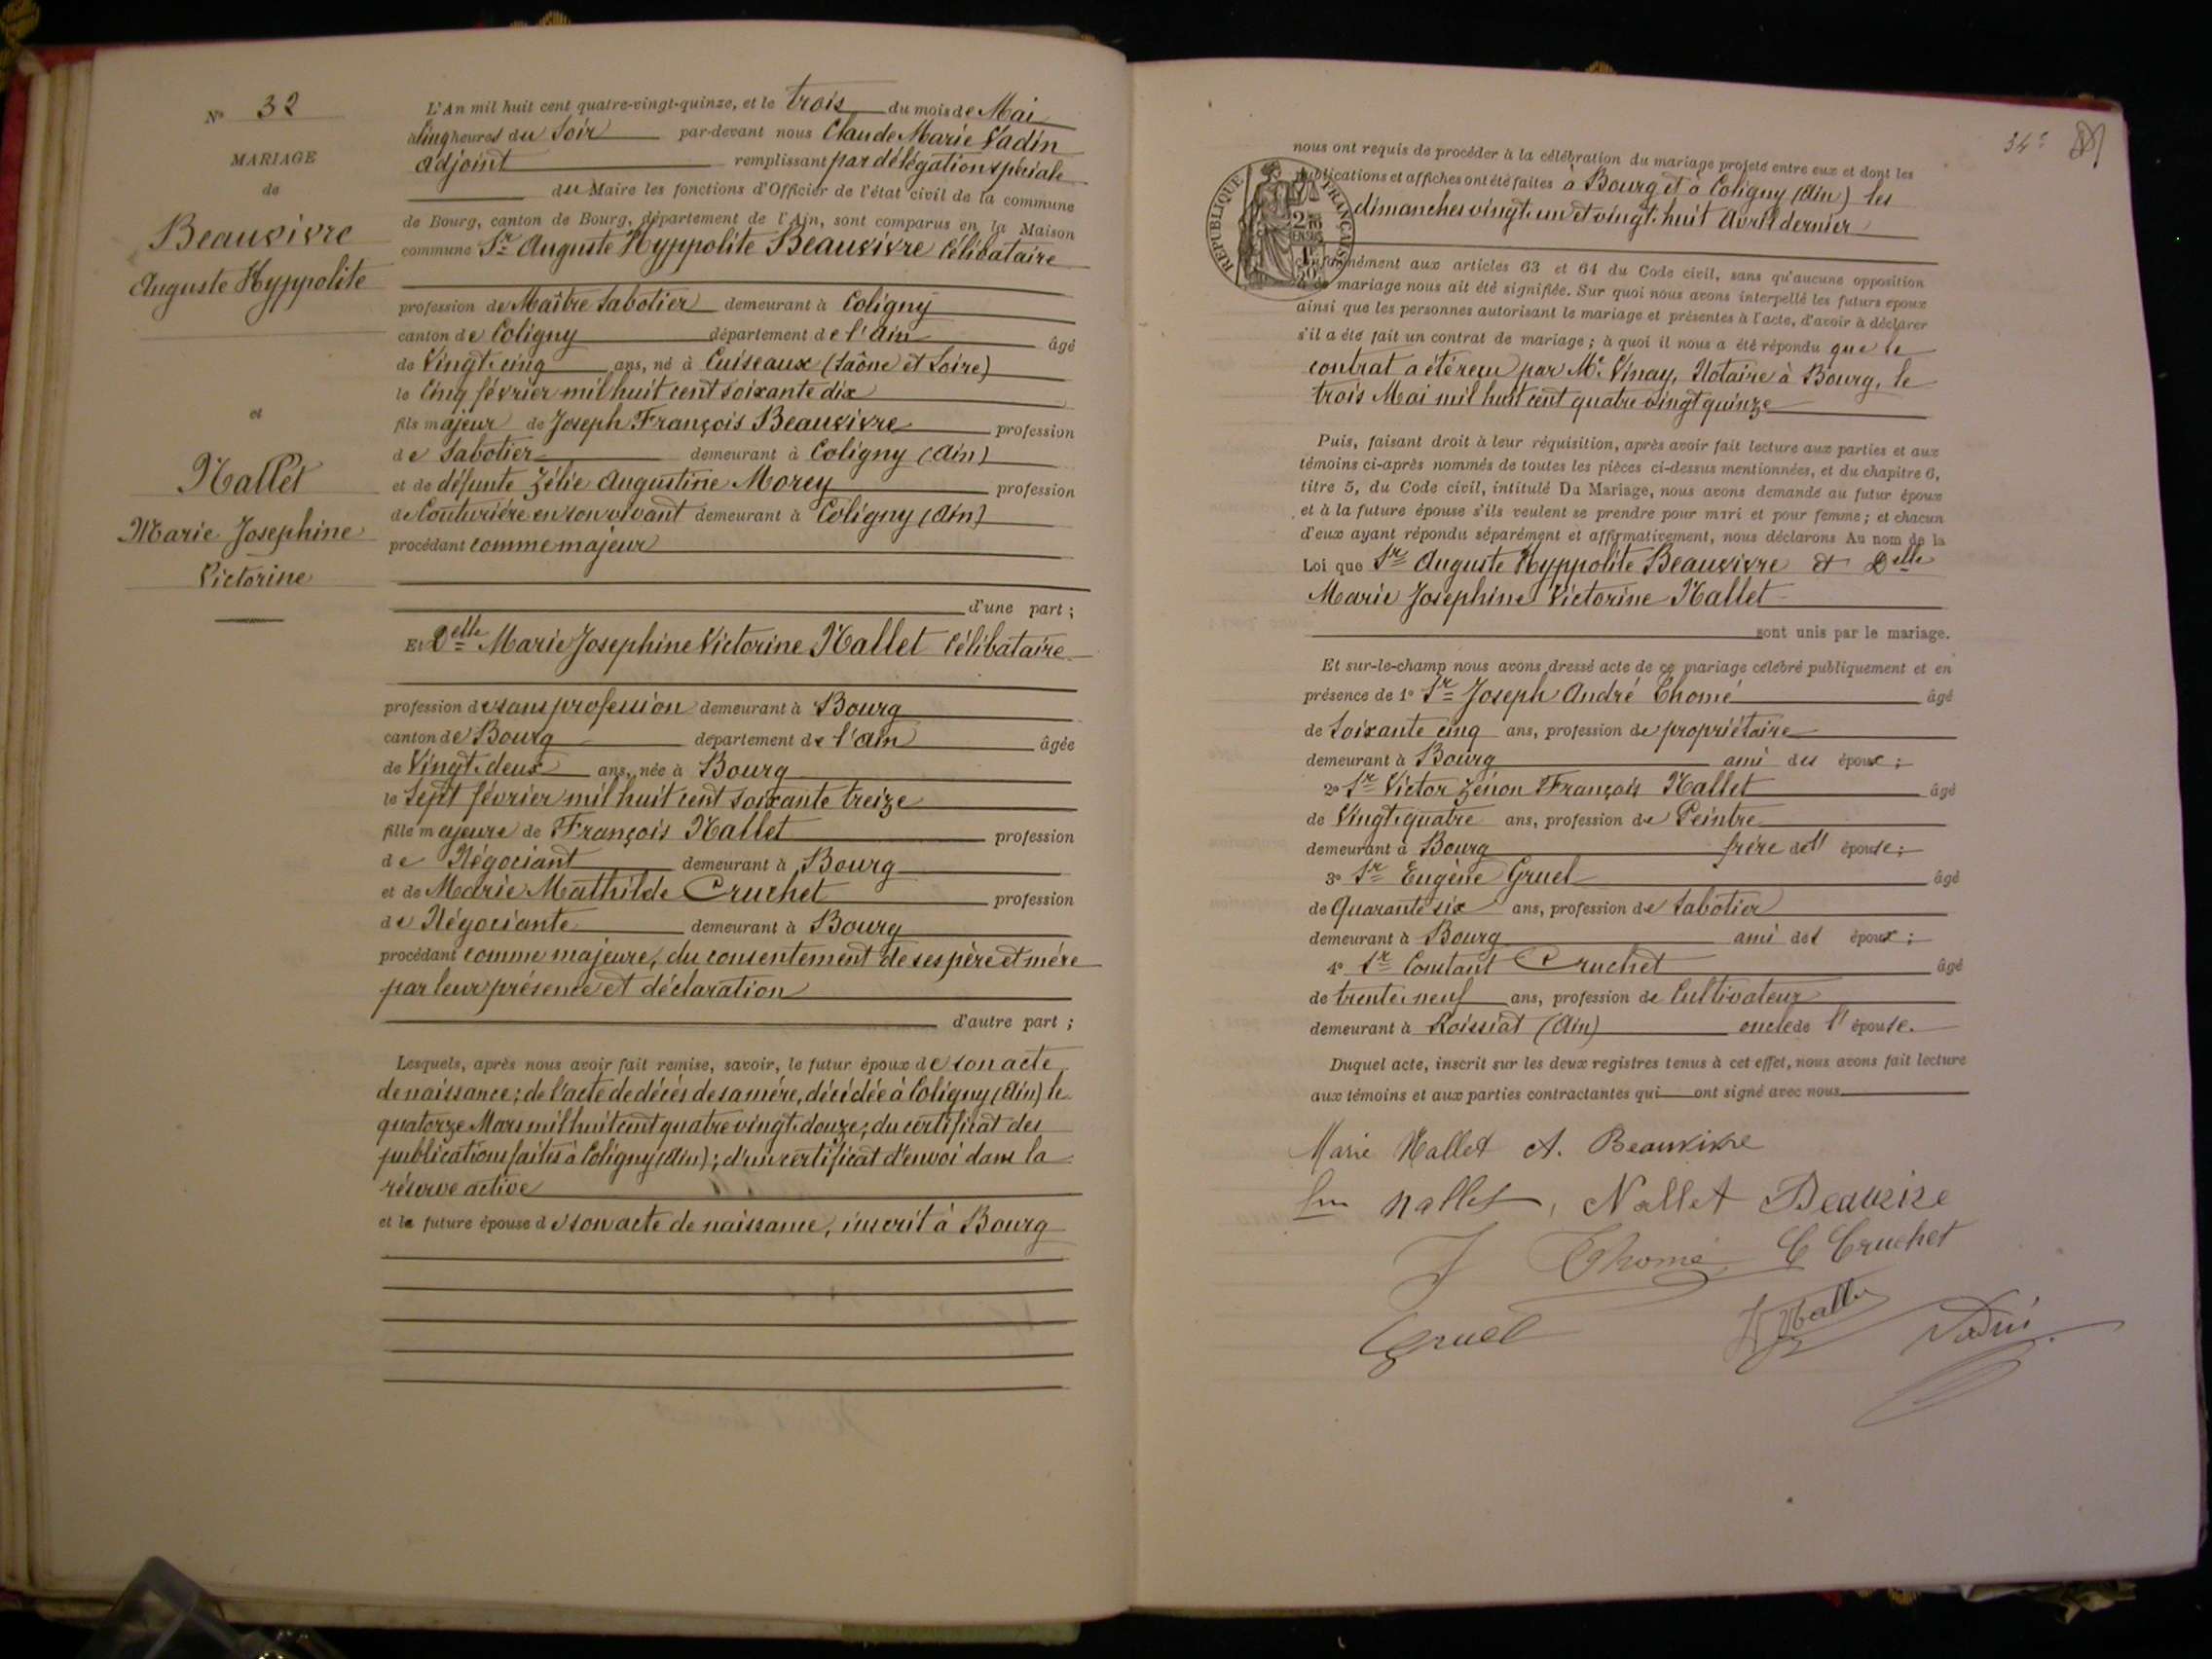 N° 32
MARIAGE
de
Beauvivre
Auguste Hyppolite
et
Nallet
Marie Josephine
Victorine
L'An mil huit cent quatre-vingt-quinze, et le trois du mois de Mai
à Cinq heures du Soir par-devant nous Claude Marie Vadin
adjoint remplissant par délégation spéciale
du Maire les fonctions d'Officier de l'état civil de la commune
de Bourg, canton de Bourg, département de l'Ain, sont comparus en la Maison
commune Sr Auguste Hyppolite Beauvivre Célibataire
profession de Maître Sabotier demeurant à Coligny
canton de Coligny département de l'Ain âgé
de Vingt-cinq ans, né à Cuiseaux (Saône et Loire)
le Cinq février mil huit cent soixante dix
fils majeur de Joseph François Beauvivre profession
de Sabotier demeurant à Coligny (Ain)
et de défunte Zélie Augustine Morey profession
de Couturière en son vivant demeurant à Coligny (Ain)
procédant comme majeur
d'une part ;
Et Delle Marie Josephine Victorine Nallet Célibataire
profession de sans profession demeurant à Bourg
canton de Bourg département de l'Ain âgée
de Vingt-deux ans, née à Bourg
le Sept février mil huit cent soixante treize
fille majeure de François Nallet profession
de Négociant demeurant à Bourg
et de Marie Mathilde Cruchet profession
de Négociante demeurant à Bourg
procédant comme majeure, du consentement de ses père et mère
par leur présence et déclaration
d'autre part ;
Lesquels, après nous avoir fait remise, savoir, le futur époux de son acte
de naissance ; de l'acte de décès de sa mère, décédée à Coligny (Ain) le
quatorze Mars mil huit cent quatre vingt-douze ; du certificat des
publications faites à Coligny (Ain) ; d'un certificat d'envoi dans la
réserve active
et la future épouse de son acte de naissance, inscrit à Bourg
34e
nous ont requis de procéder à la célébration du mariage projeté entre eux et dont les
publications et affiches ont été faites à Bourg et à Coligny (Ain) les
dimanches vingt-un et vingt-huit Avril dernier
RÉPUBLIQUE FRANÇAISE
conformément aux articles 63 et 64 du Code civil, sans qu'aucune opposition
à ce mariage nous ait été signifiée. Sur quoi nous avons interpellé les futurs époux
ainsi que les personnes autorisant le mariage et présentes à l'acte, d'avoir à déclarer
s'il a été fait un contrat de mariage ; à quoi il nous a été répondu que le
contrat a été reçu par Me Vinay, Notaire à Bourg, le
trois Mai mil huit cent quatre vingt quinze
Puis, faisant droit à leur réquisition, après avoir fait lecture aux parties et aux
témoins ci-après nommés de toutes les pièces ci-dessus mentionnées, et du chapitre 6,
titre 5, du Code civil, intitulé Du Mariage, nous avons demandé au futur époux
et à la future épouse s'ils veulent se prendre pour mari et pour femme ; et chacun
d'eux ayant répondu séparément et affirmativement, nous déclarons Au nom de la
Loi que Sr Auguste Hyppolite Beauvivre et Delle
Marie Josephine Victorine Nallet
sont unis par le mariage.
Et sur-le-champ nous avons dressé acte de ce mariage célébré publiquement et en
présence de 1° Sr Joseph André Thomé âgé
de Soixante cinq ans, profession de propriétaire
demeurant à Bourg ami des époux ;
2° Sr Victor Zénon François Nallet âgé
de Vingt-quatre ans, profession de Peintre
demeurant à Bourg frère de l' épouse ;
3° Sr Eugène Gruel âgé
de Quarante six ans, profession de Sabotier
demeurant à Bourg ami des époux ;
4° Sr Constant Cruchet âgé
de trente-neuf ans, profession de Cultivateur
demeurant à Roissiat (Ain) oncle de l' épouse.
Duquel acte, inscrit sur les deux registres tenus à cet effet, nous avons fait lecture
aux témoins et aux parties contractantes qui ont signé avec nous
Marie Nallet A. Beauvivre
nallet, Nallet Beauvive
J Thomé C Cruchet
Gruel Nallet Vadin